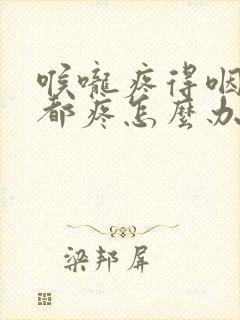 喉嚨疼得咽
都疼怎麼办
梁邦屏